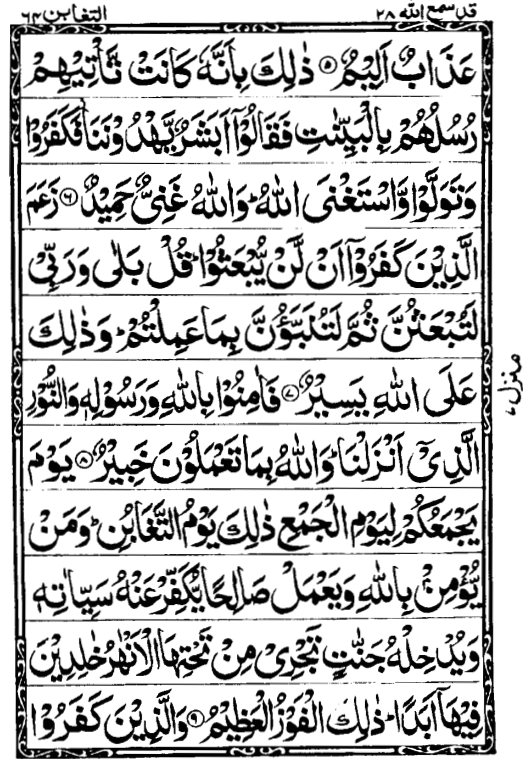 قد سمع الله ٢٨
التغابن ٦٤
عَذَابٌ اَلِيْمٌ ۝٥ ذٰلِكَ بِاَنَّهٗ كَانَتْ تَّاْتِيْهِمْ
رُسُلُهُمْ بِالْبَيِّنٰتِ فَقَالُوْۤا اَبَشَرٌ يَّهْدُوْنَنَا فَكَفَرُوْا
وَتَوَلَّوْا وَّاسْتَغْنَى اللّٰهُ ؕ وَاللّٰهُ غَنِيٌّ حَمِيْدٌ ۝٦ زَعَمَ
الَّذِيْنَ كَفَرُوْۤا اَنْ لَّنْ يُّبْعَثُوْا ؕ قُلْ بَلٰى وَرَبِّيْ
لَتُبْعَثُنَّ ثُمَّ لَتُنَبَّؤُنَّ بِمَا عَمِلْتُمْ ؕ وَذٰلِكَ
عَلَى اللّٰهِ يَسِيْرٌ ۝٧ فَاٰمِنُوْا بِاللّٰهِ وَرَسُوْلِهٖ وَالنُّوْرِ
الَّذِيْۤ اَنْزَلْنَا ؕ وَاللّٰهُ بِمَا تَعْمَلُوْنَ خَبِيْرٌ ۝٨ يَوْمَ
يَجْمَعُكُمْ لِيَوْمِ الْجَمْعِ ذٰلِكَ يَوْمُ التَّغَابُنِ ؕ وَمَنْ
يُّؤْمِنْۢ بِاللّٰهِ وَيَعْمَلْ صَالِحًا يُّكَفِّرْ عَنْهُ سَيِّاٰتِهٖ
وَيُدْخِلْهُ جَنّٰتٍ تَجْرِيْ مِنْ تَحْتِهَا الْاَنْهٰرُ خٰلِدِيْنَ
فِيْهَاۤ اَبَدًا ؕ ذٰلِكَ الْفَوْزُ الْعَظِيْمُ ۝٩ وَالَّذِيْنَ كَفَرُوْا
منزل ٧